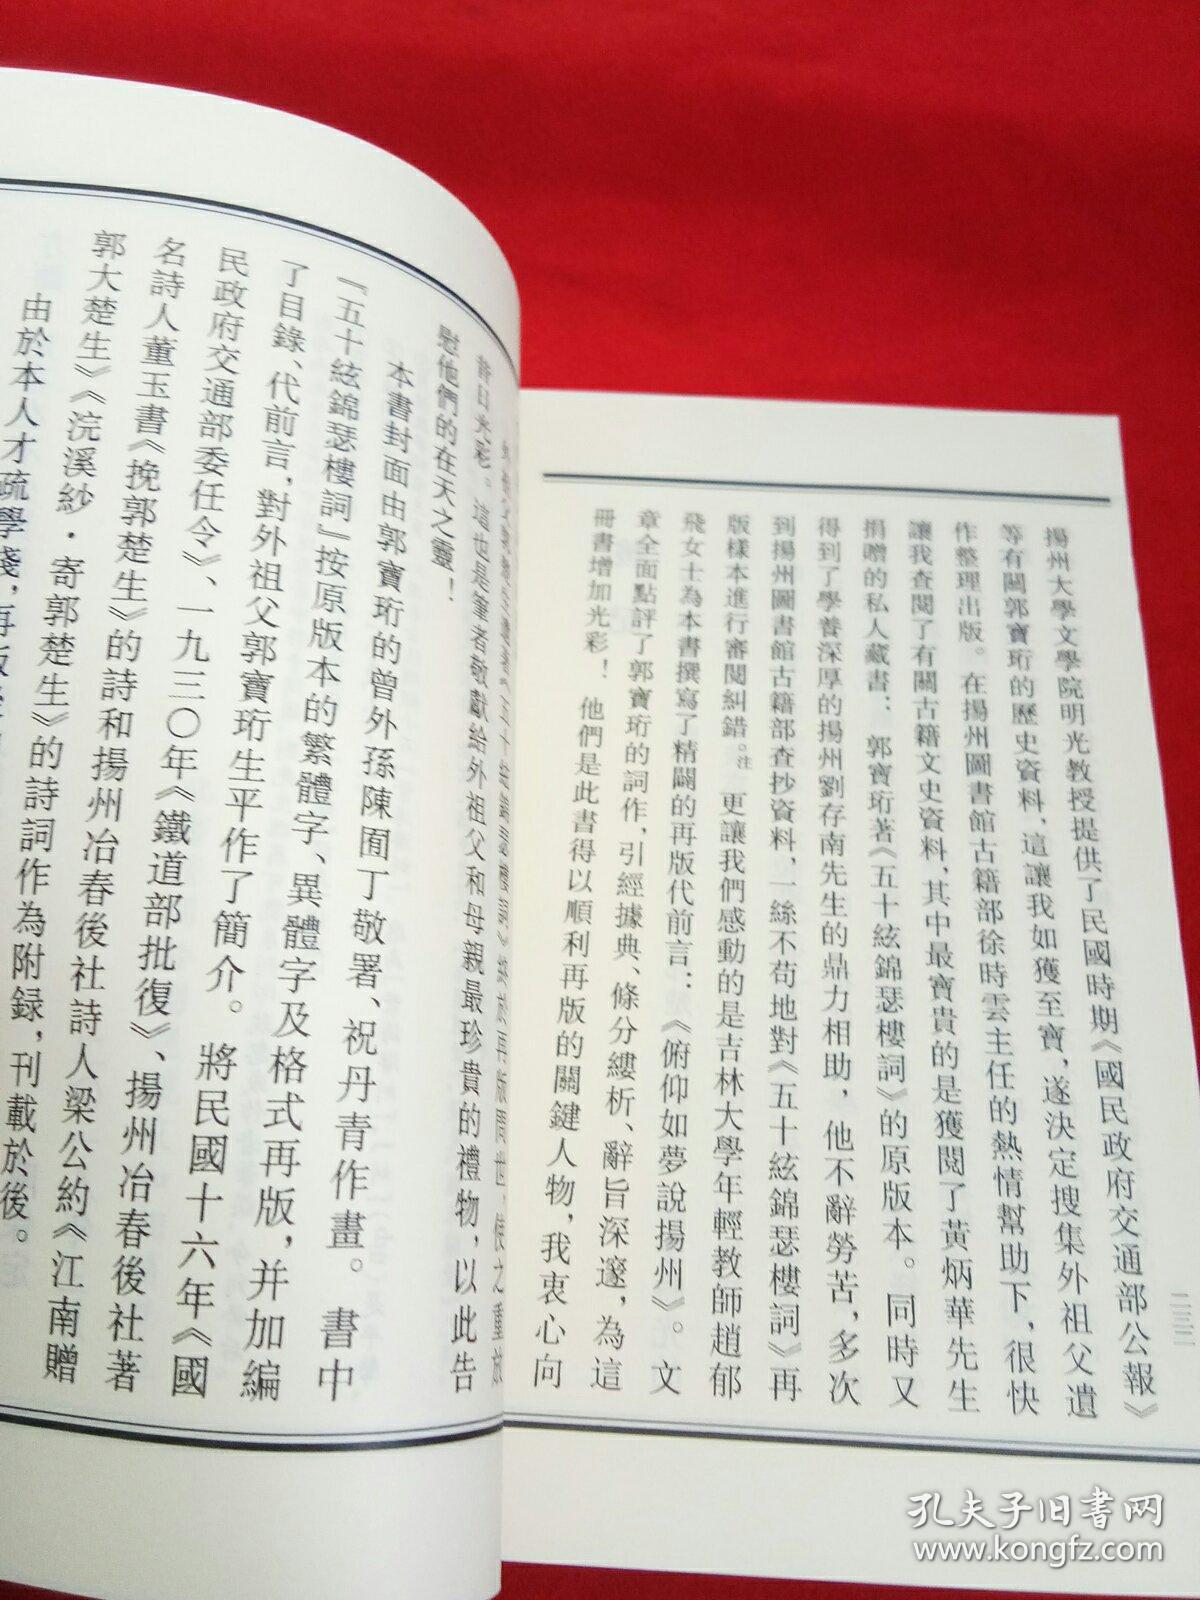 二三二
揚州大學文學院明光教授提供了民國時期《國民政府交通部公報》
等有關郭寶珩的歷史資料，這讓我如獲至寶，遂決定搜集外祖父遺
作整理出版。在揚州圖書館古籍部徐時雲主任的熱情幫助下，很快
讓我查閱了有關古籍文史資料，其中最寶貴的是獲閱了黃炳華先生
捐贈的私人藏書：郭寶珩著《五十絃錦瑟樓詞》的原版本。同時又
得到了學養深厚的揚州劉存南先生的鼎力相助，他不辭勞苦，多次
到揚州圖書館古籍部查抄資料，一絲不苟地對《五十絃錦瑟樓詞》再
版樣本進行審閱糾錯。注 更讓我們感動的是吉林大學年輕教師趙郁
飛女士為本書撰寫了精闢的再版代前言：《俯仰如夢說揚州》。文
章全面點評了郭寶珩的詞作，引經據典、條分縷析、辭旨深邃，為這
冊書增加光彩！他們是此書得以順利再版的關鍵人物，我衷心向
昔日光彩。這也是筆者敬獻給外祖父和母親最珍貴的禮物，以此告
慰他們的在天之靈！
本書封面由郭寶珩的曾外孫陳囿丁敬署、祝丹青作畫。書中
『五十絃錦瑟樓詞』按原版本的繁體字、異體字及格式再版，并加編
了目錄、代前言，對外祖父郭寶珩生平作了簡介。將民國十六年《國
民政府交通部委任令》、一九三〇年《鐵道部批復》、揚州冶春後社著
名詩人董玉書《挽郭楚生》的詩和揚州冶春後社詩人梁公約《江南贈
郭大楚生》《浣溪紗·寄郭楚生》的詩詞作為附録，刊載於後。
由於本人才疏學淺，再版
孔夫子旧书网
www.kongfz.com